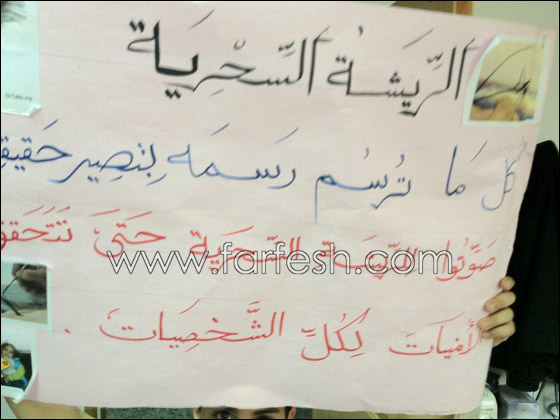 الرِّيشَةُ السِّحْرِيَة
كُل مَا تُرسُم رَسمَه بِتصِير حَقِيقِ
صَوِّتُوا للرِّيشَة السِّحرِيَة حَتَى تَتَحَقق
الأمنِيَات لِكُلِّ الشَّخصِيات .
www.farfesh.com